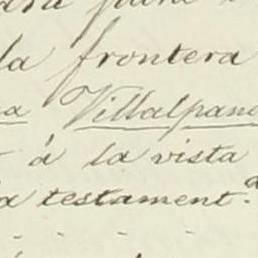 para para
la frontera
a Villalpand
á la vista
a testament.ª